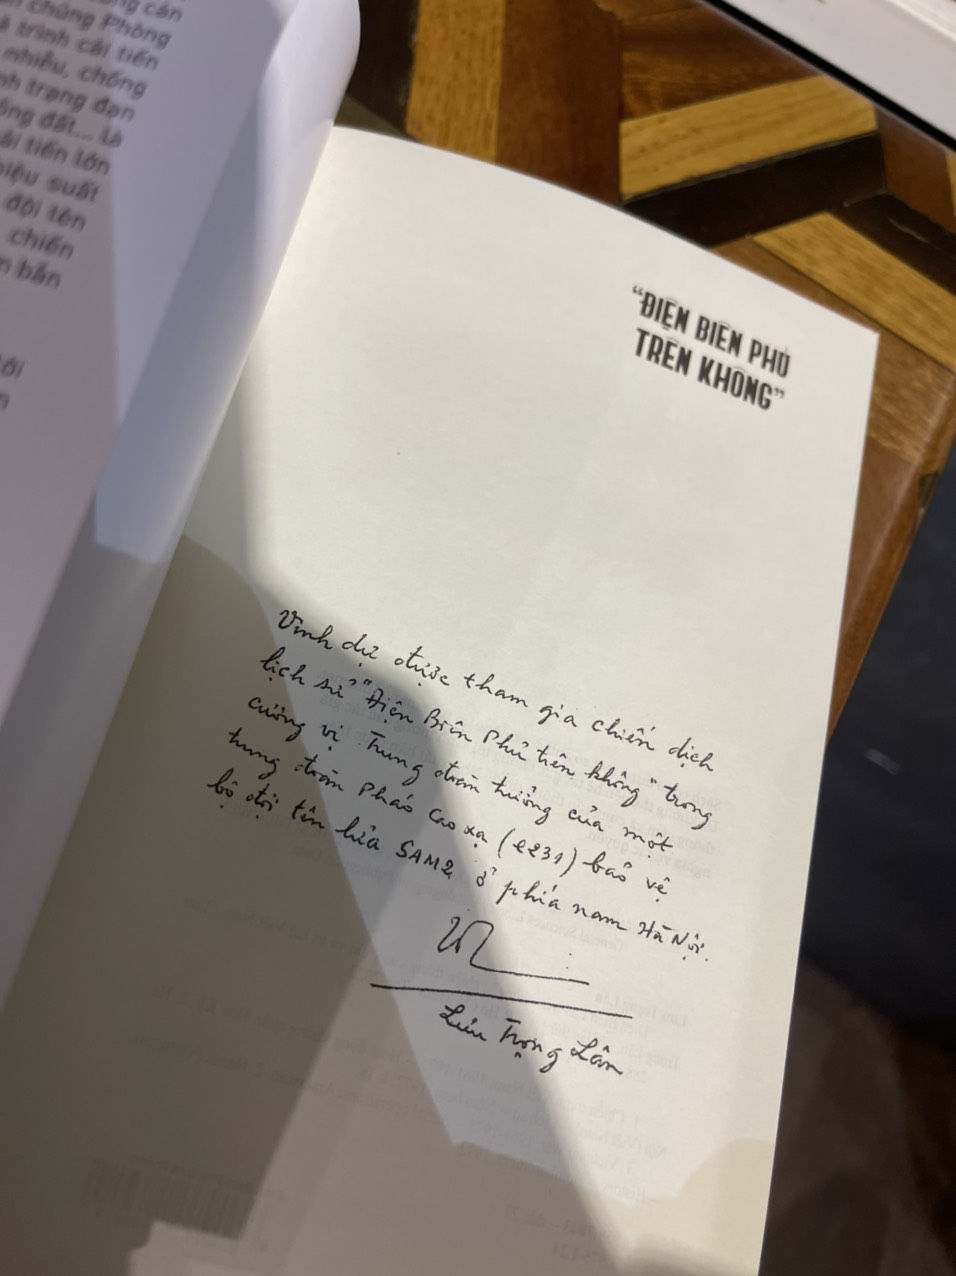 ng cán
chúng Phòng
trình cải tiến
nhiễu, chống
nh trạng đạn
ống đất... là
ải tiến lớn
hiệu suất
đội tên
chiến
bắn
“ĐIỆN BIÊN PHỦ
TRÊN KHÔNG”
Vinh dự được tham gia chiến dịch
lịch sử "Điện Biên Phủ trên không" trong
cương vị Trung đoàn trưởng của một
trung đoàn pháo cao xạ (e231) bảo vệ
bộ đội tên lửa SAM2 ở phía nam Hà Nội.
Lưu Trọng Lân